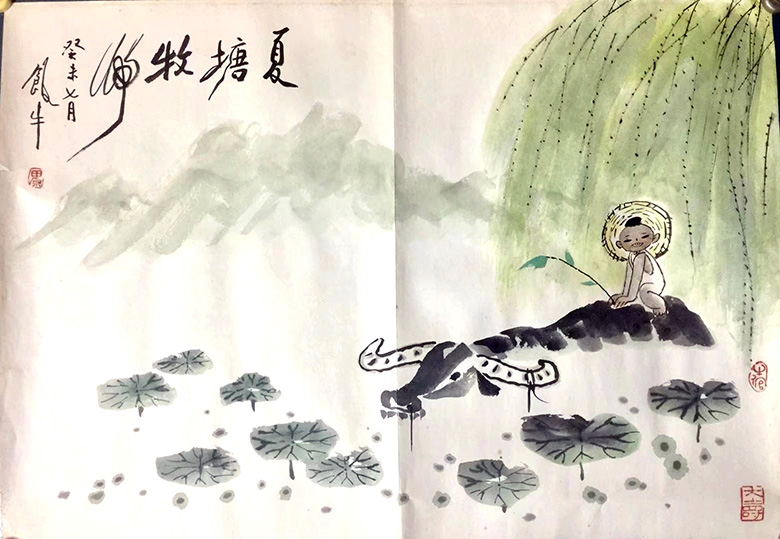 夏塘牧归
癸未七月
飯牛